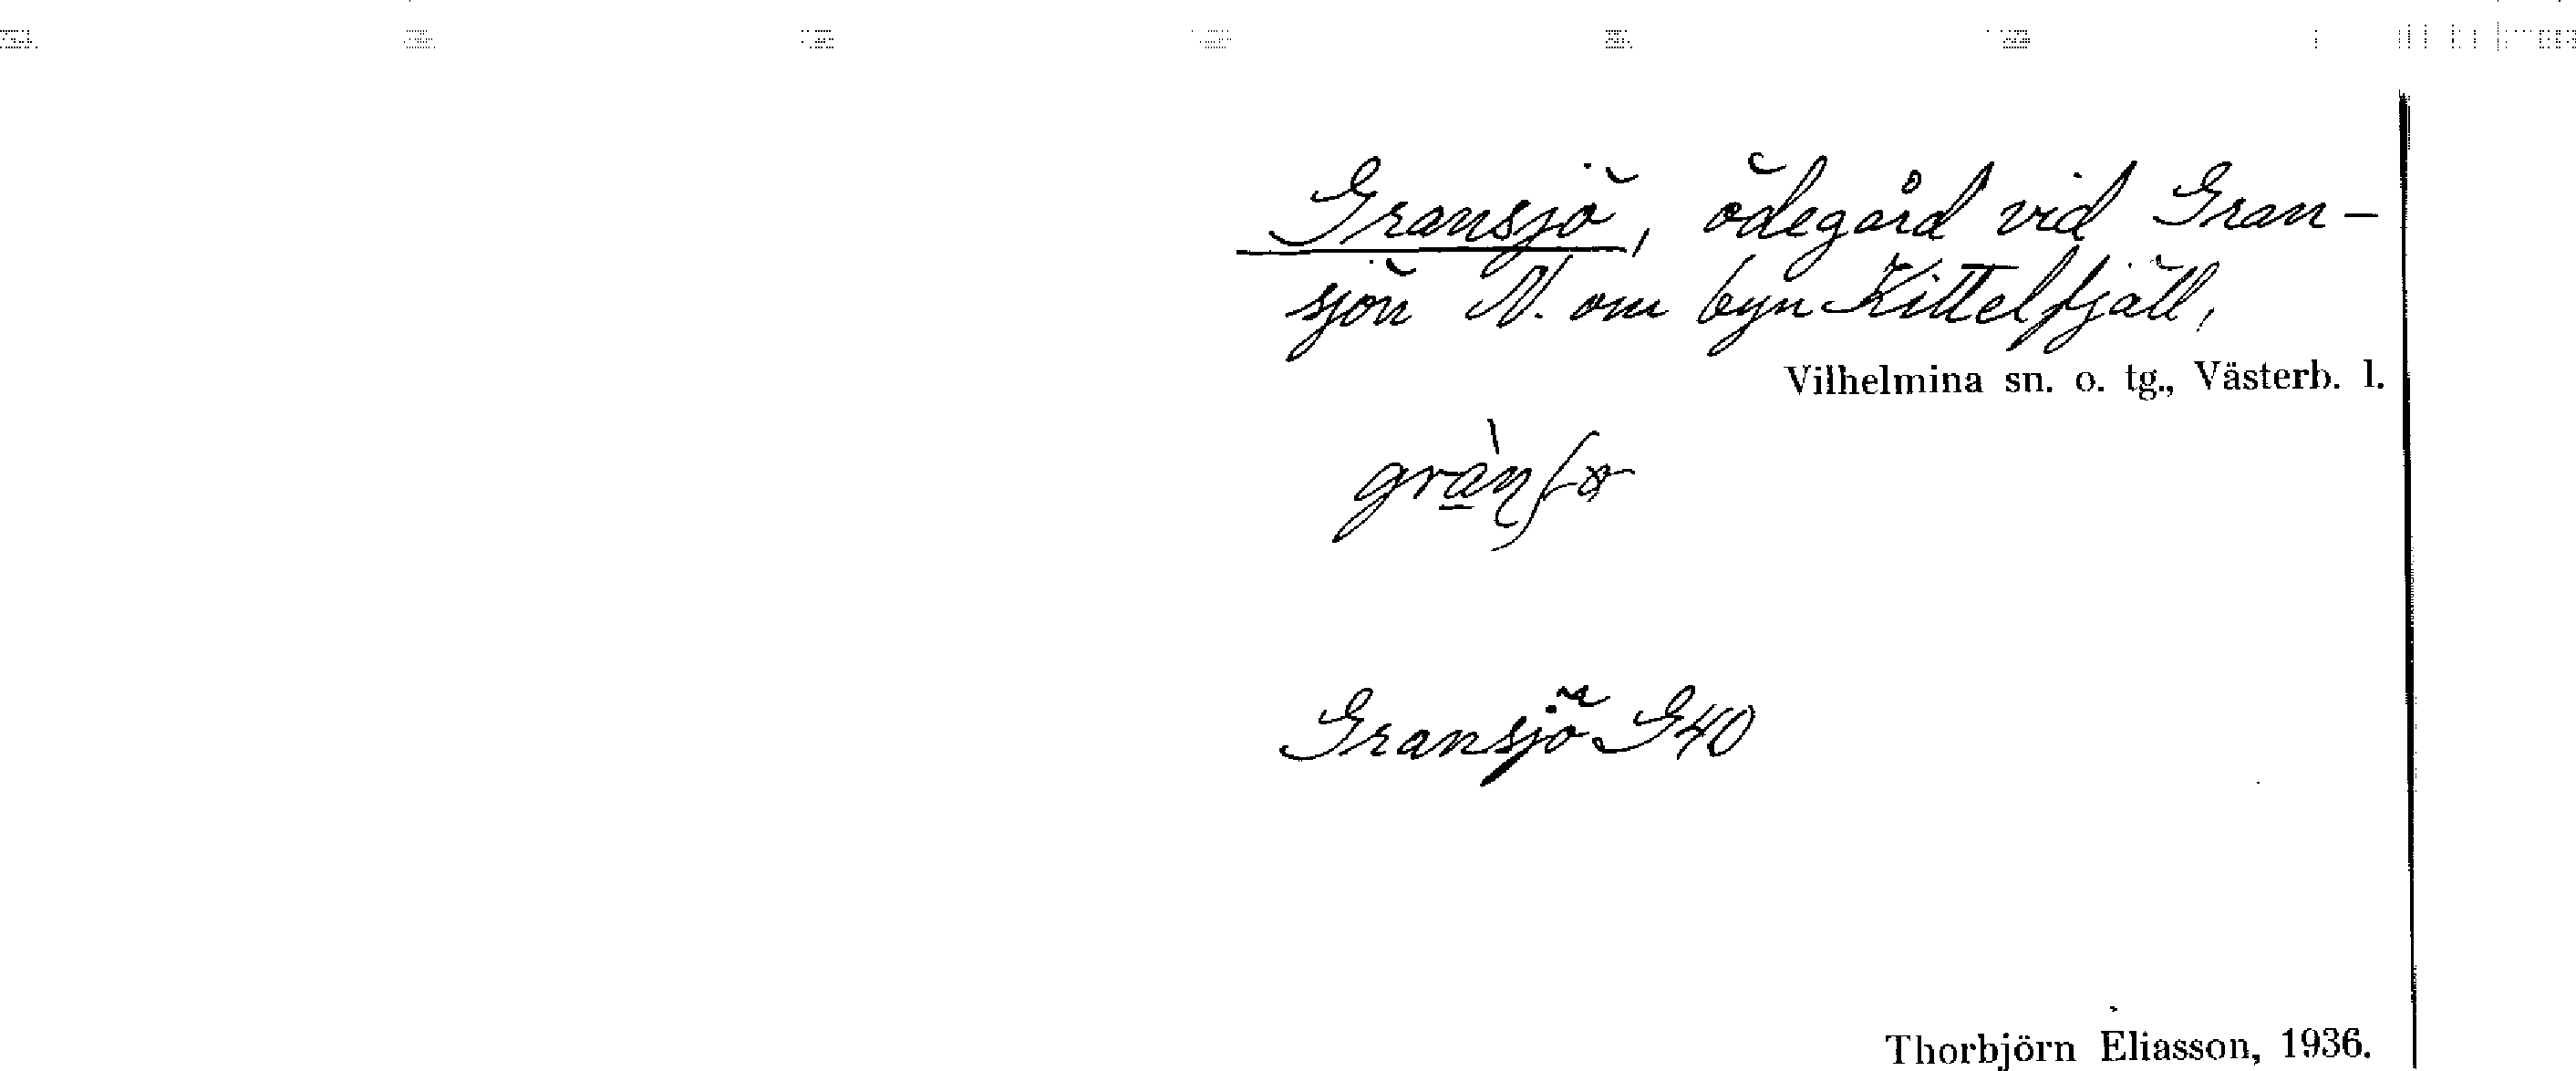 Gransjö, ödegård vid Gran-
sjön N. om byn Kittelfjäll,
Vilhelmina sn. o. tg., Västerb. l.
Gransjö G40
Thorbjörn Eliasson, 1936.